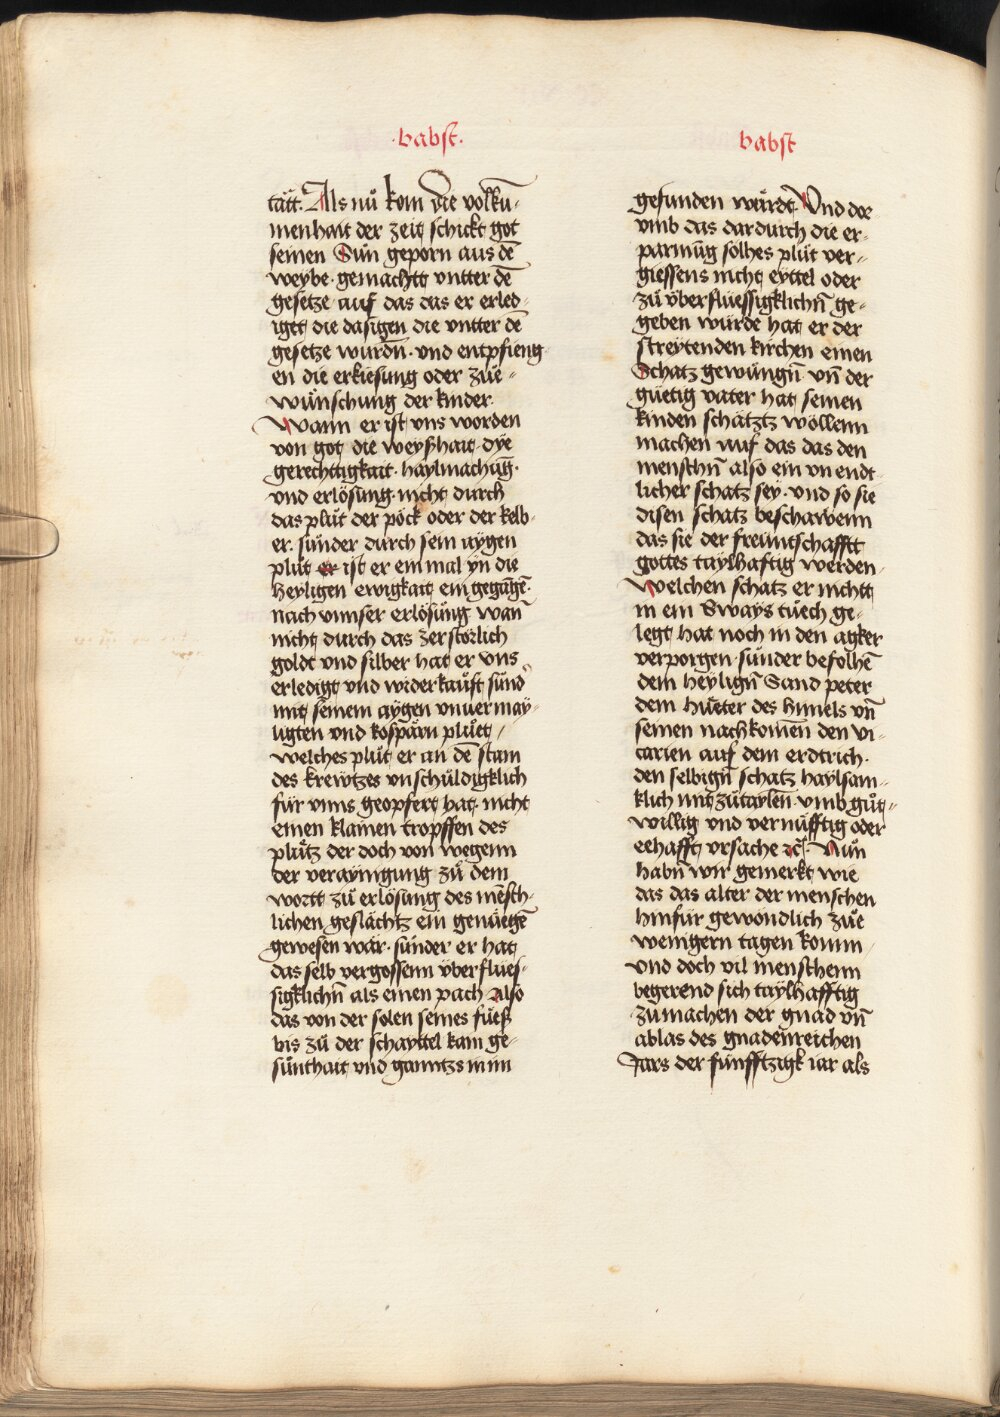 ·babst·
tätt. Als nů kom die volkū-
menhait der zeit schickt got
seinen Sůn geporn aus dē
weybe· gemachtt vntter dē
gesetze auf das das er erled-
iget die dasigen die vntter dē
gesetze wurdn̄· vnd entpfieng
en die erkiesung oder zůe-
wůnschung der kinder.
Wann er ist vns worden
von got die weyßhait dye
gerechtigkait· haylmachūg·
vnd erlösung nicht durch
das plůt der pöck oder der kelb-
er· sünder durch sein aygen
plůt er ist er ein mal yn die
heyligen ewigkait ein gegāgē·
nach vnnser erlösůng wan̄
nicht durch das zerstörlich
goldt vnd silber hat er vns
erledigt vnd widerkaůft sůnd̾
mit seinem aygen vnuermay-
ligten vnd kospärn plůet /
welches plůt er an dē stam
des krewtzes vnschůldigklich
für vnns geopfert hat· nicht
einen klainen tropffen des
plůtz der doch von wegenn
der veraynigung zů dem
wortt zů erlösung des mēsch-
lichen geslächtz ein genůegē
gewesen wär· sünder er hat
das selb vergossenn vberflues-
sigklichn̄ als einen pach also
das von der solen seines fůeß
bis zů der schayttel kain ge-
sůnthait vnd ganntzs in im
babst
gefunden wůrdt. Vnd dor
vmb das dardurch die er-
parmūg solhes plůt ver-
giessens nicht eyttel oder
zů vberfluessigklichn̄ ge-
geben würde hat er der
streytenden kirchen einen
Schatz gewůngn̄ vn̄ der
gůetig vater hat seinen
kinden schätztz wöllenn
machen auf das das den
menschn̄ also ein vn endt-
licher schatz sey· vnd so sie
disen schatz beschawenn
das sie der freuntschafftt
gottes taylhaftig werden
Welchen schatz er nichtt
in ein Sways tůech ge-
legt hat noch in den agker
verporgen· sůnder befolhē
dem heylign̄ Sand peter
dem hůeter des himels vn̄
seinen nachkomēn den vi-
carien auf dem erdtrich·
den selbign̄ schatz haylsam-
klich mit zůtaylēn· vmb gůt-
willig vnd vernůfftig oder
eehafft vrsache ꝛc̄. Nůn
habn̄ wir gemerkt wie
das das alter der menschen
hinfůr gewöndlich zůe
wenigern tagen komm
vnd doch vil menschenn
begerend sich taylhafftig
zumachen der gnad vn̄
ablas des gnadenreichen
Jars der fůnfftzigk iar als